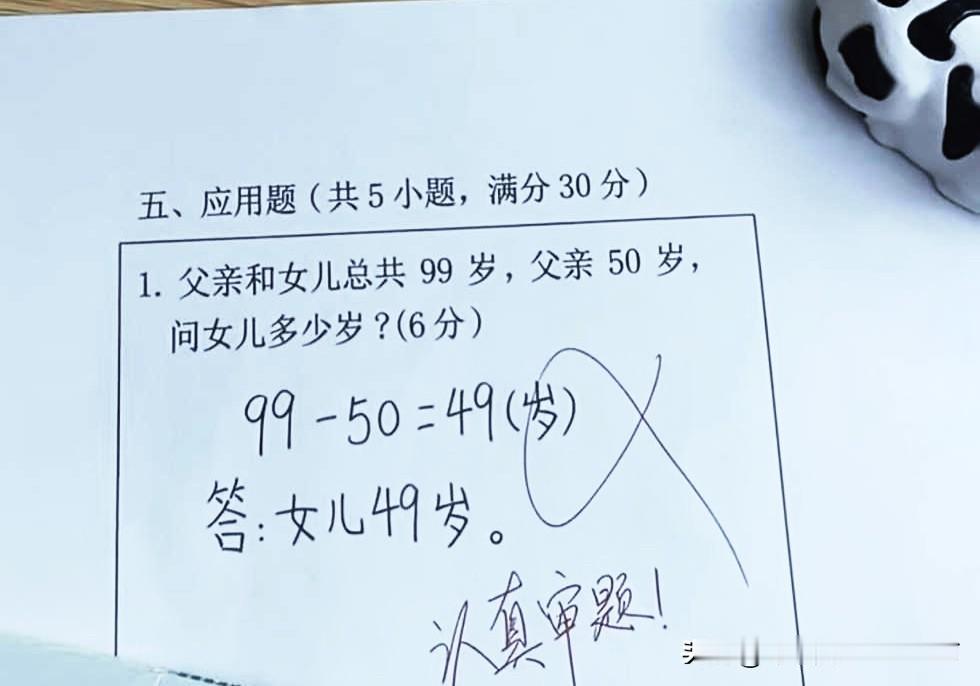 五、应用题（共5小题，满分30分）
1. 父亲和女儿总共 99 岁，父亲 50 岁，
问女儿多少岁？(6分）
99-50=49(岁)
答:女儿49岁。
认真审题!